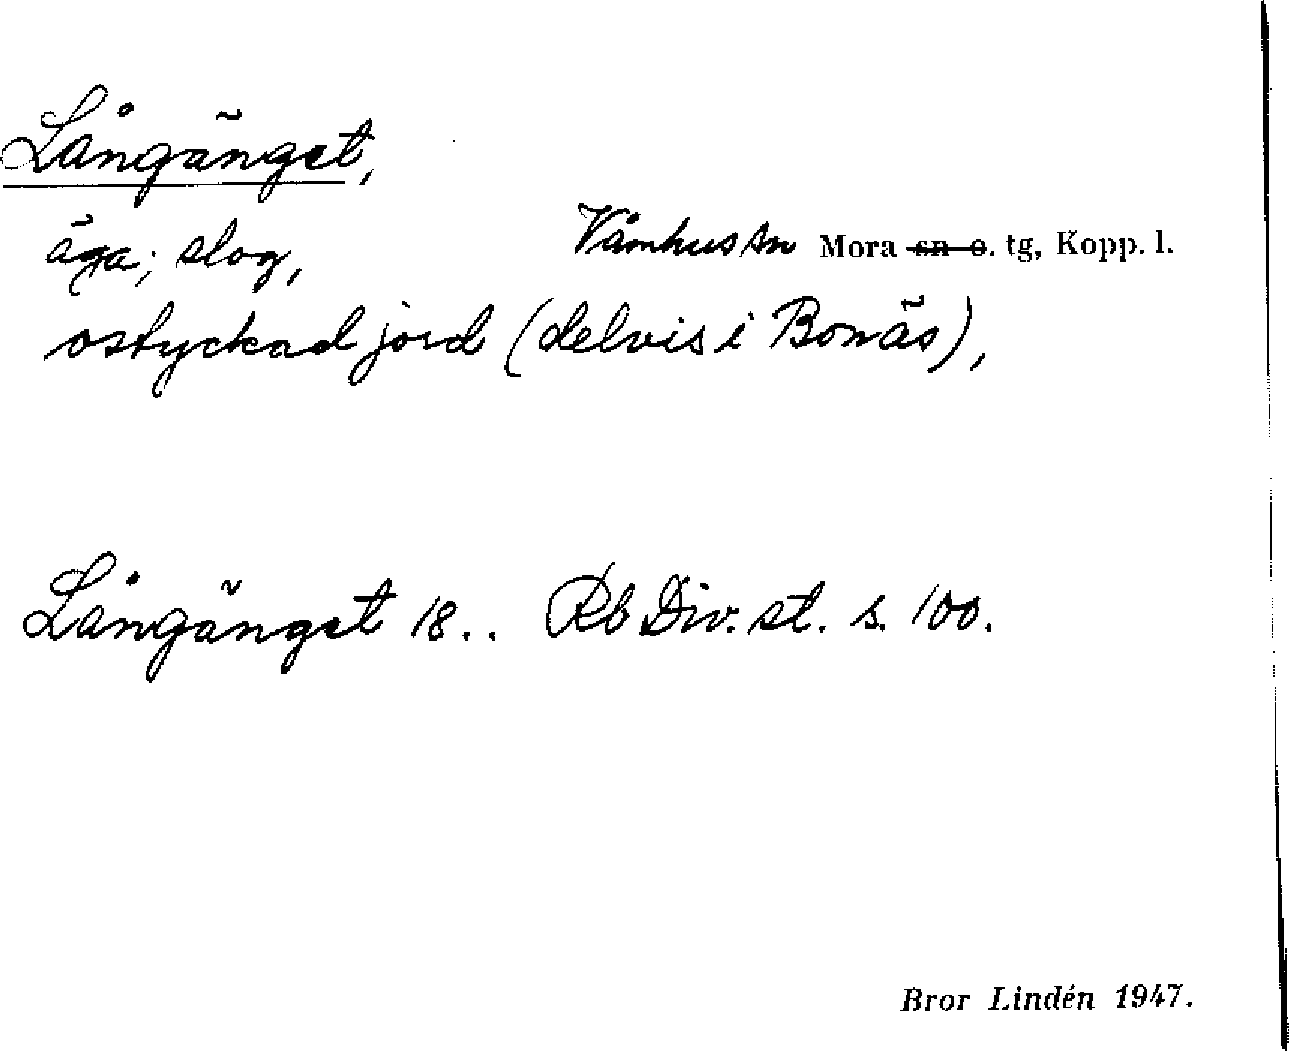 Långänget,
äga; slog, Våmhus sn Mora sn o. tg, Kopp. l.
ostyckad jord (delvis i Bonäs),
Långänget 18.. Rb Div. st. s. 100.
Bror Lindén 1947.